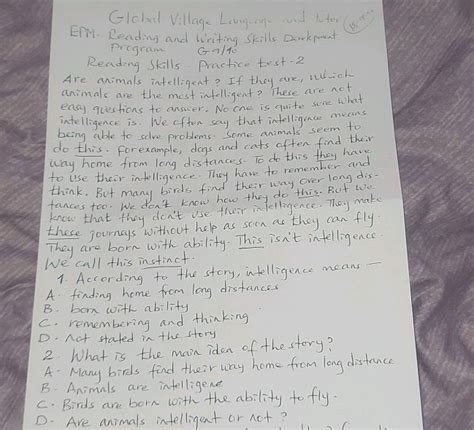 Global Village Language and
EPM. Reading and Writing Skills Development
Program G-9/10
Reading Skills Practice test-2
Are animals intelligent? If they are, which
animals are the most intelligent? These are not
easy questions to answer. No one is quite sure what
intelligence is. We often say that intelligence means
being able to solve problems. Some animals seem to
do this. For example, dogs and cats often find their
way home from long distances. To do this they have
to use their intelligence. They have to remember and
think. But many birds find their way over long dis-
tances too. We don't know how they do this. But we
know that they don't use their intelligence. They make
these journeys without help as soon as they can fly.
They are born with ability. This isn't intelligence.
We call this instinct.
1. According to the story, intelligence means —
A. finding home from long distances
B. born with ability
C. remembering and thinking
D. not stated in the story
2. What is the main idea of the story?
A. Many birds find their way home from long distance
B. Animals are intelligene
C. Birds are born with the ability to fly.
D. Are animals intelligent or not?